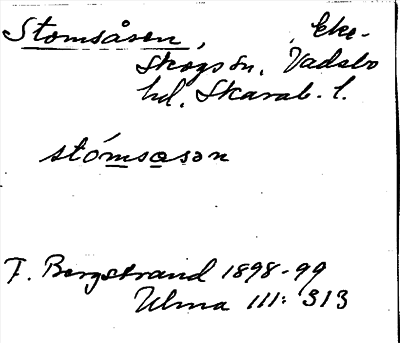 Stomsåsen, Eke-
skogs sn. Vadsbo
hd. Skarab. l.
stómsasən
F. Bergstrand 1898-99
Ulma 111: 313